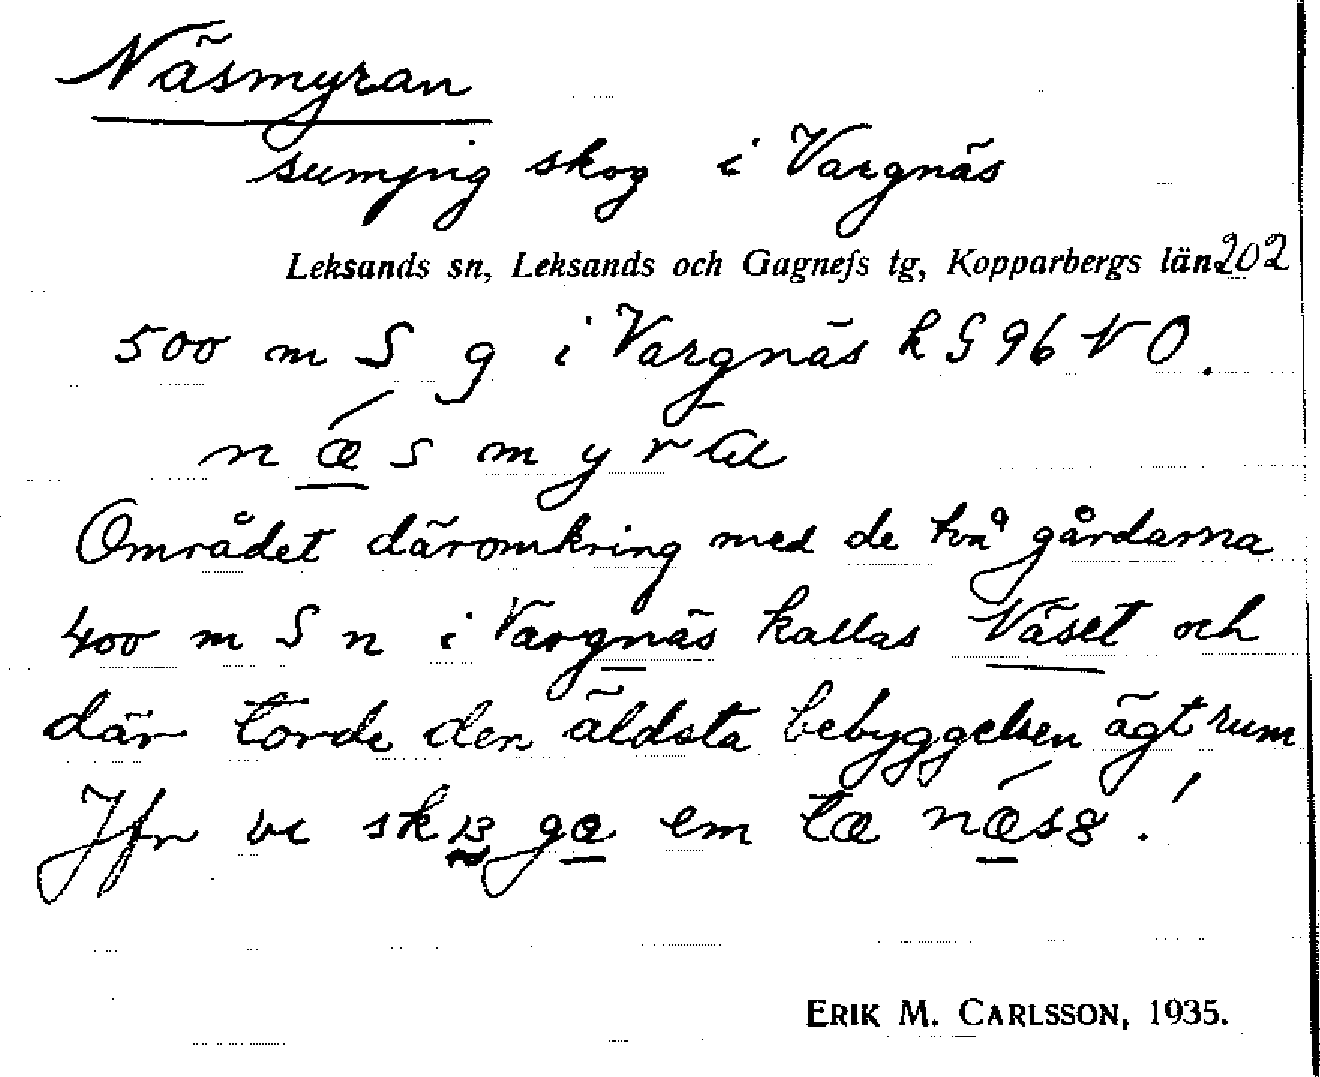 Näsmyran
sumpig skog i Vargnäs
Leksands sn, Leksands och Gagnefs tg, Kopparbergs län. 202
500 m S g i Vargnäs k G 96 N O.
næsmyra
Området däromkring med de två gårdarna
400 m S n i Vargnäs kallas Näset och
där torde den äldsta bebyggelsen ägt rum
Jfr vi em tæ !
ERIK M. CARLSSON, 1935.